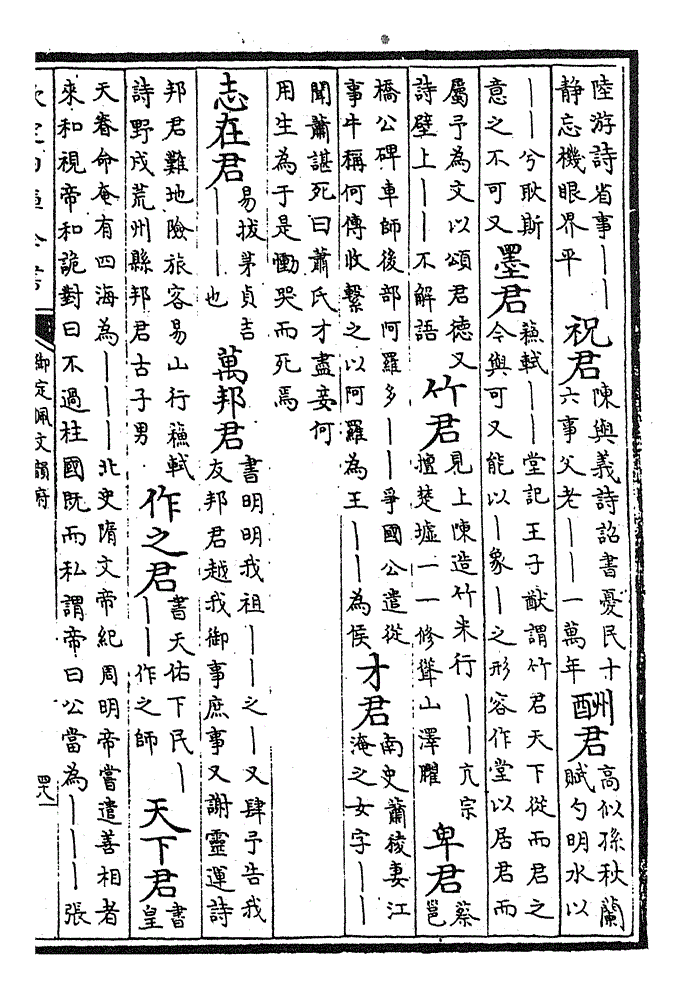 陸游詩省事｜｜
靜忘機眼界平
祝君
陳與義詩詔書憂民十
六事父老｜｜一萬年
酬君
高似孫秋蘭
賦勺明水以
｜｜兮耿斯
意之不可又
墨君
蘓軾｜｜堂記王子猷謂竹君天下從而君之
今與可又能以｜象｜之形容作堂以居君而
屬予為文以頌君德又
詩壁上｜｜不解語
竹君
見上陳造竹米行｜｜亢宗
壇楚墟一一修聳山澤臞
卑君
蔡
邕
橋公碑車師後部阿羅多｜｜爭國公遣從
事牛稱何傳收繫之以阿羅為王｜｜為侯
才君
南史蕭稜妻江
淹之女字｜｜
聞蕭諶死曰蕭氏才盡妾何
用生為于是慟哭而死焉
志在君
易拔茅貞吉
｜｜｜也
萬邦君
書明明我祖｜｜之｜又肆予告我
友邦君越我御事庶事又謝靈運詩
邦君難地險旅客易山行蘓軾
詩野戍荒州縣邦君古子男
作之君
書天佑下民｜
｜｜作之師
天下君
書
皇
天眷命奄有四海為｜｜｜北史隋文帝紀周明帝嘗遣善相者
來和視帝和詭對曰不過柱國既而私謂帝曰公當為｜｜｜張
欽定四庫全書
御定佩文韻府